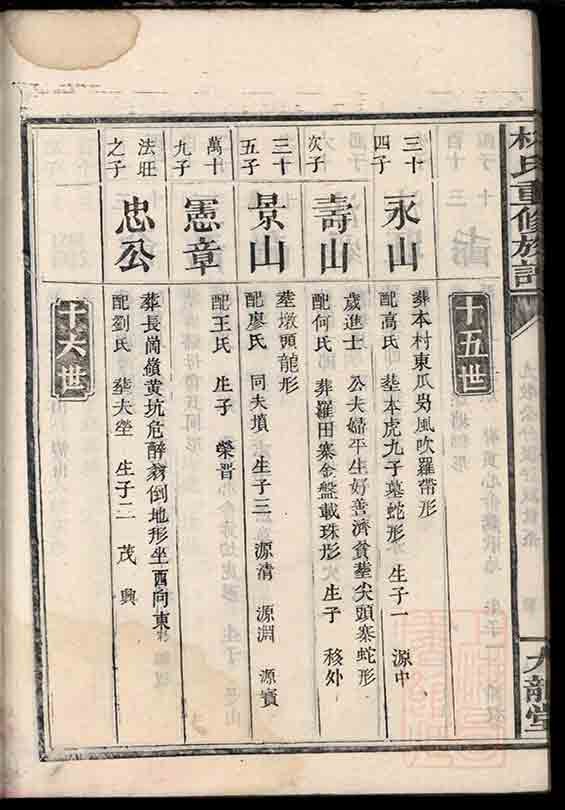 林氏重修族譜
九龍堂
十五世
三十
四子
永山
葬本村東瓜㘭風吹羅帶形
配高氏 塟本虎九子墓蛇形 生子一 源中
次子
壽山
歲進士 公夫婦平生好善濟貧塟尖頭寨蛇形
配何氏 葬羅田寨金盤載珠形 生子 移外
三十
五子
景山
塟墩頭龍形
配廖氏 同夫墳 生子三 源清 源淵 源賓
萬十
九子
憲章
配王氏 生子 榮晋
法旺
之子
忠公
葬長崗嶺黄坑危醉翁倒地形坐酉向東
配劉氏 塟夫塋 生子二 茂 興
十六世